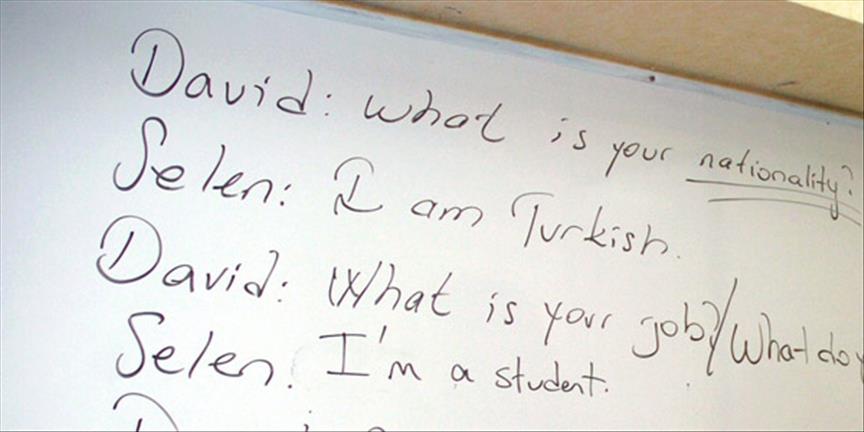 David: what is your nationality?
Selen: I am Turkish.
David: What is your job?/What do
Selen. I'm a student.